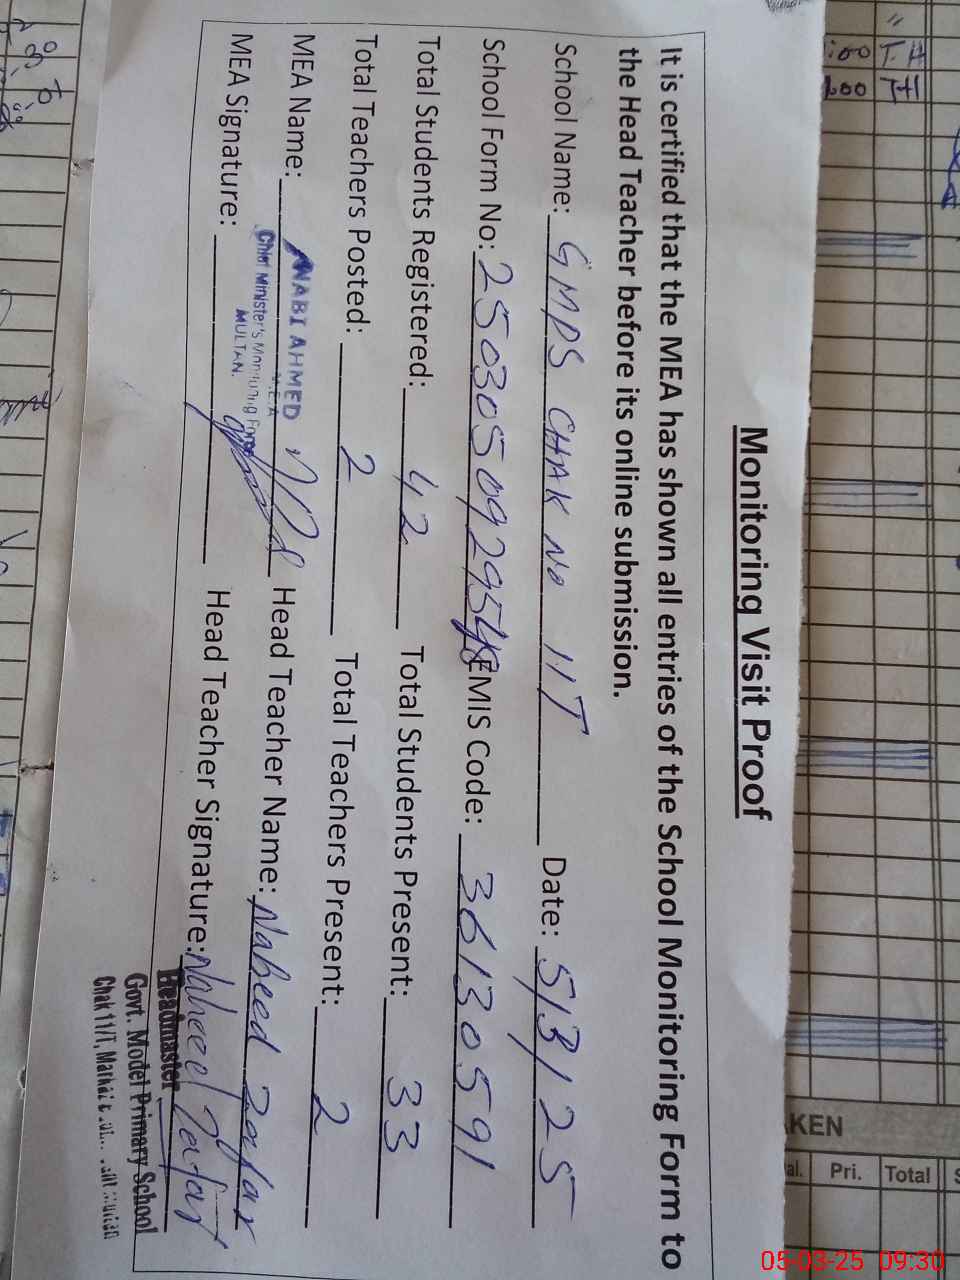 Monitoring Visit Proof
It is certified that the MEA has shown all entries of the School Monitoring Form to
the Head Teacher before its online submission.
School Name: GMPS CHAK No 11T Date: 5/3/25
School Form No: EMIS Code: 36130591
Total Students Registered: 42 Total Students Present: 33
Total Teachers Posted: 2 Total Teachers Present: 2
MEA Name: NABI AHMED Head Teacher Name: Naheed Zafar
M.E.A
Chief Minister's Monitoring Force
MULTAN.
MEA Signature: Head Teacher Signature: Naheed Zafar
Headmaster
Govt. Model Primary School
Chak 11/T,
KEN
Pri. Total
T.H
05-03-25 09:30